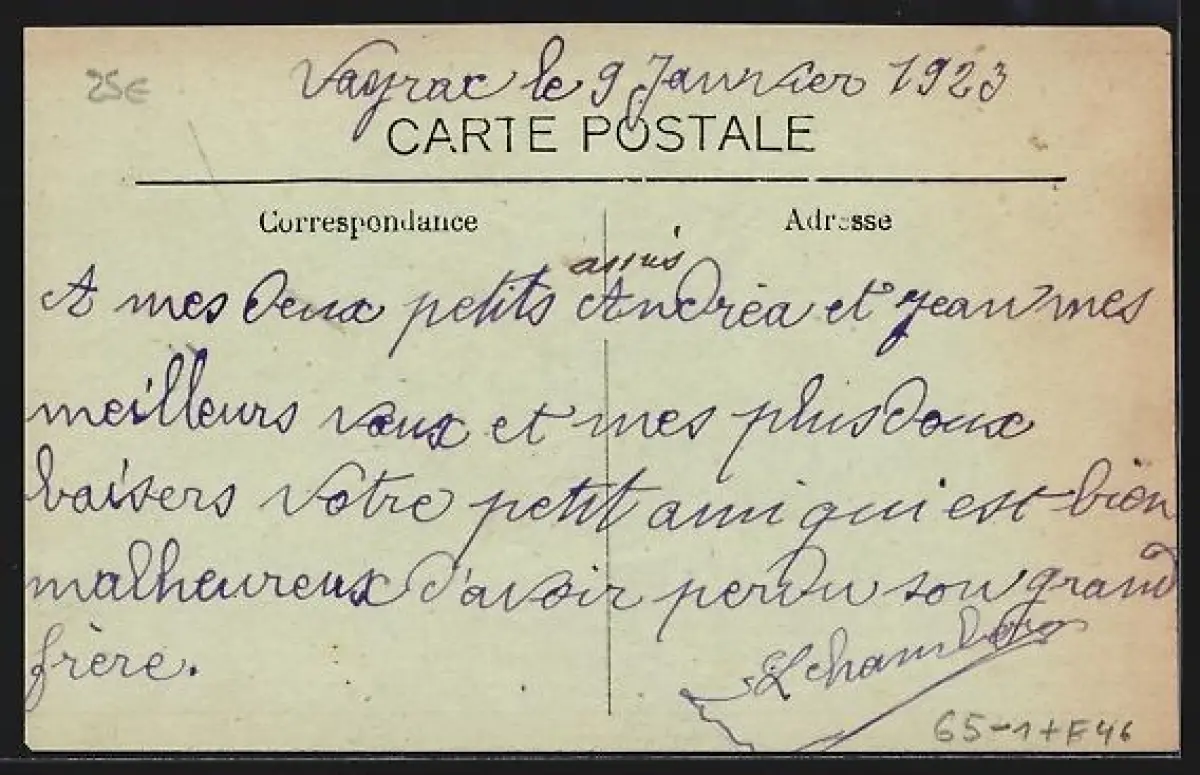 25€
Vayrac le 9 Janvier 1923
CARTE POSTALE
Correspondance
Adresse
amis
A mes deux petits Andréa et Jean mes
meilleurs vœux et mes plus doux
baisers Votre petit ami qui est bien
malheureux d'avoir perdu son grand
frère.
65-1+F46